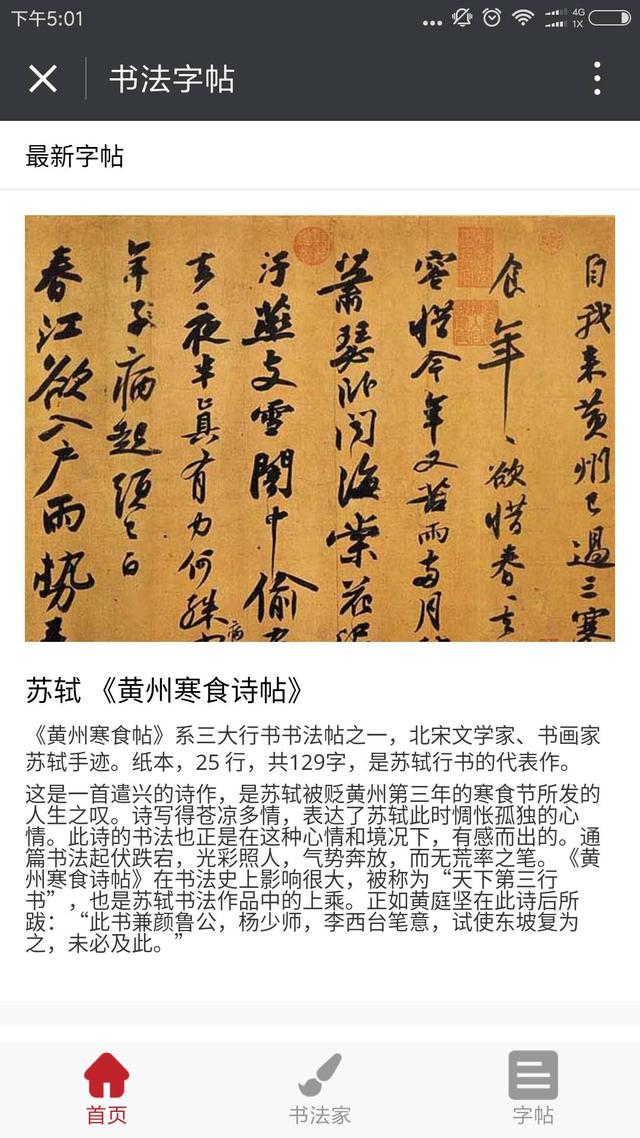 下午5:01
4G
1X
书法字帖
最新字帖
自我来黄州已過三寒
食年、欲惜春、去
容惜今年又苦雨兩月
蕭瑟卧聞海棠花泥
汙燕支雪闇中偷
去夜半真有力何殊
病
年子病起頭已白
春江欲入戶雨勢来
苏轼 《黄州寒食诗帖》
《黄州寒食帖》系三大行书书法帖之一，北宋文学家、书画家
苏轼手迹。纸本，25 行，共129字，是苏轼行书的代表作。
这是一首遣兴的诗作，是苏轼被贬黄州第三年的寒食节所发的
人生之叹。诗写得苍凉多情，表达了苏轼此时惆怅孤独的心
情。此诗的书法也正是在这种心情和境况下，有感而出的。通
篇书法起伏跌宕，光彩照人，气势奔放，而无荒率之笔。《黄
州寒食诗帖》在书法史上影响很大，被称为“天下第三行
书”，也是苏轼书法作品中的上乘。正如黄庭坚在此诗后所
跋：“此书兼颜鲁公，杨少师，李西台笔意，试使东坡复为
之，未必及此。”
首页
书法家
字帖